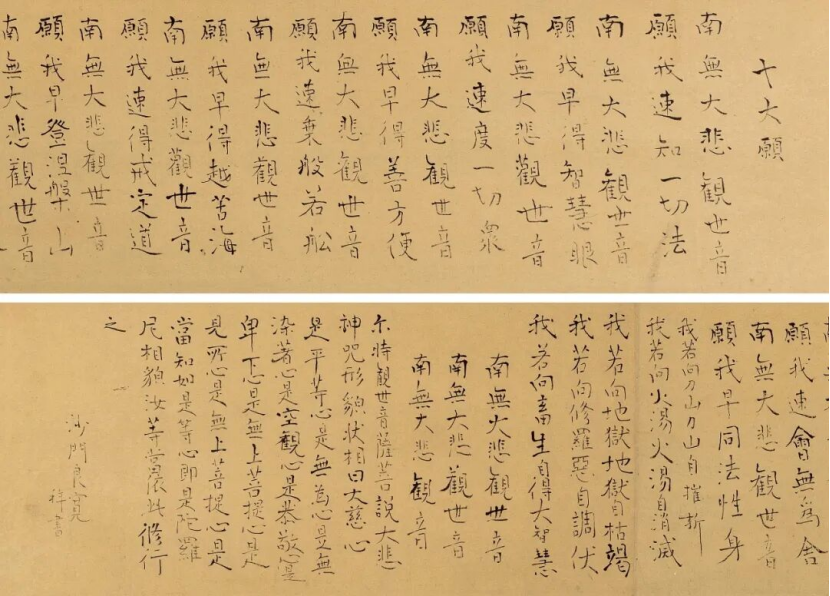 十大願
南無大悲觀世音
願我速知一切法
南無大悲觀世音
願我早得智慧眼
南無大悲觀世音
願我速度一切衆
南無大悲觀世音
願我早得善方便
南無大悲觀世音
願我速乗般若舩
南無大悲觀世音
願我早得越苦海
南無大悲觀世音
願我速得戒定道
南無大悲觀世音
願我早登涅槃山
南無大悲觀世音
願我速會無爲舎
南無大悲觀世音
願我早同法性身
我若向刀山刀山自摧折
我若向火湯火湯自消滅
我若向地獄地獄自枯竭
我若向修羅惡自調伏
我若向畜生自得大智慧
南無大悲觀世音
南無大悲觀世音
南無大悲觀音
尓時觀世音薩菩說大悲
神咒形貌状相曰大慈心
是平等心是無為心是無
染著心是空觀心是恭敬心是
卑下心是無上菩提心是
見心是無上菩提心是
當知如是等心即是陀羅
尼相貌汝等當依此修行
之
沙門良寛
拝書